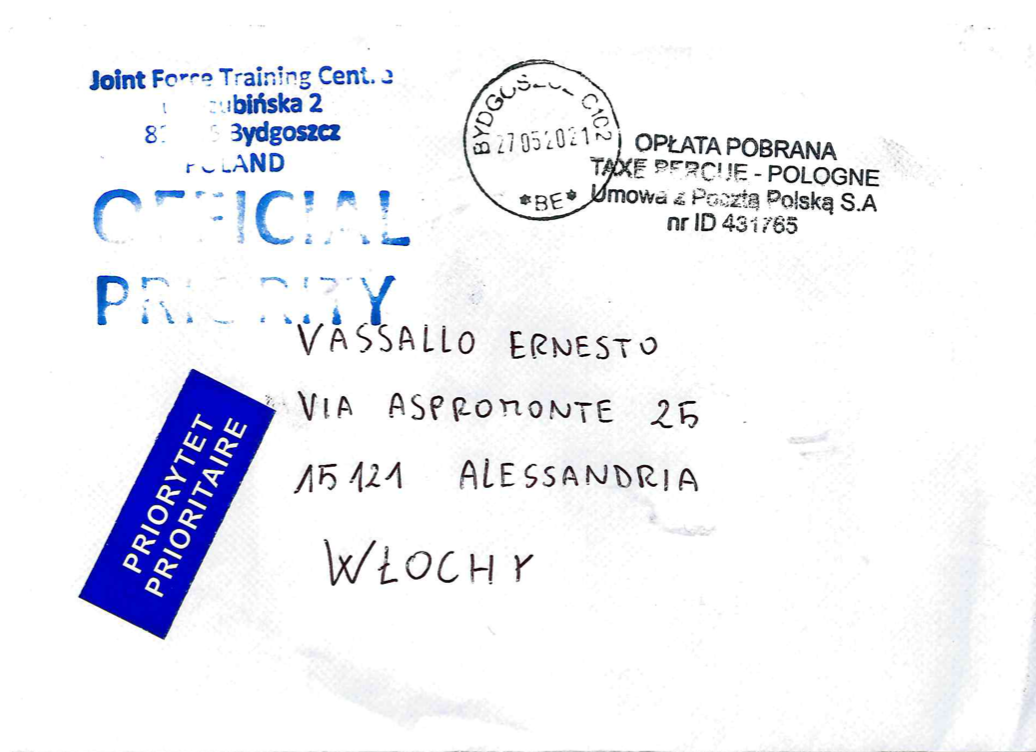 Joint Force Training
ubińska 2
Bydgoszcz
POLAND
OFFICIAL
PRIORITY
BYDGOSZCZ C102
27052021
*BE*
OPŁATA POBRANA
TAXE PERCUE - POLOGNE
Umowa z Pocztą Polską S.A
nr ID 431765
VASSALLO ERNESTO
VIA ASPROMONTE 25
15121 ALESSANDRIA
WŁOCHY
PRIORYTET
PRIORITAIRE